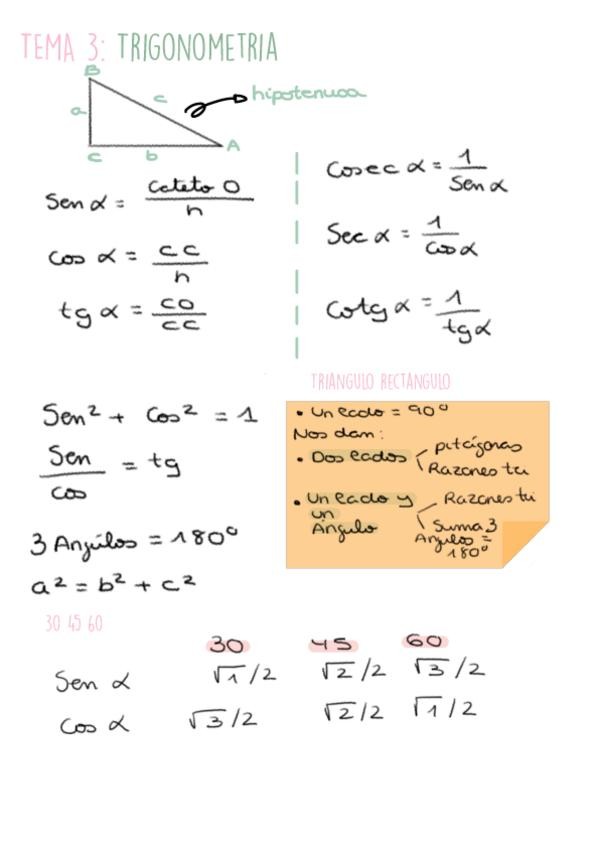 TEMA 3: TRIGONOMETRIA
B
c
hipotenusa
a
A
c
b
Sen α = Cateto O / h
Cos α = CC / h
tg α = CO / CC
Cosec α = 1 / Sen α
Sec α = 1 / Cos α
Cotg α = 1 / tg α
TRIANGULO RECTANGULO
Sen² + Cos² = 1
Sen / Cos = tg
3 Angúlos = 180º
a² = b² + c²
• Un lado = 90º
Nos dan:
• Dos lados
pitágoras
Razones tri
• Un lado y
un
Ángulo
Razones tri
Suma 3
Angulos =
180º
30 45 60
30 45 60
Sen α √1/2 √2/2 √3/2
Cos α √3/2 √2/2 √1/2